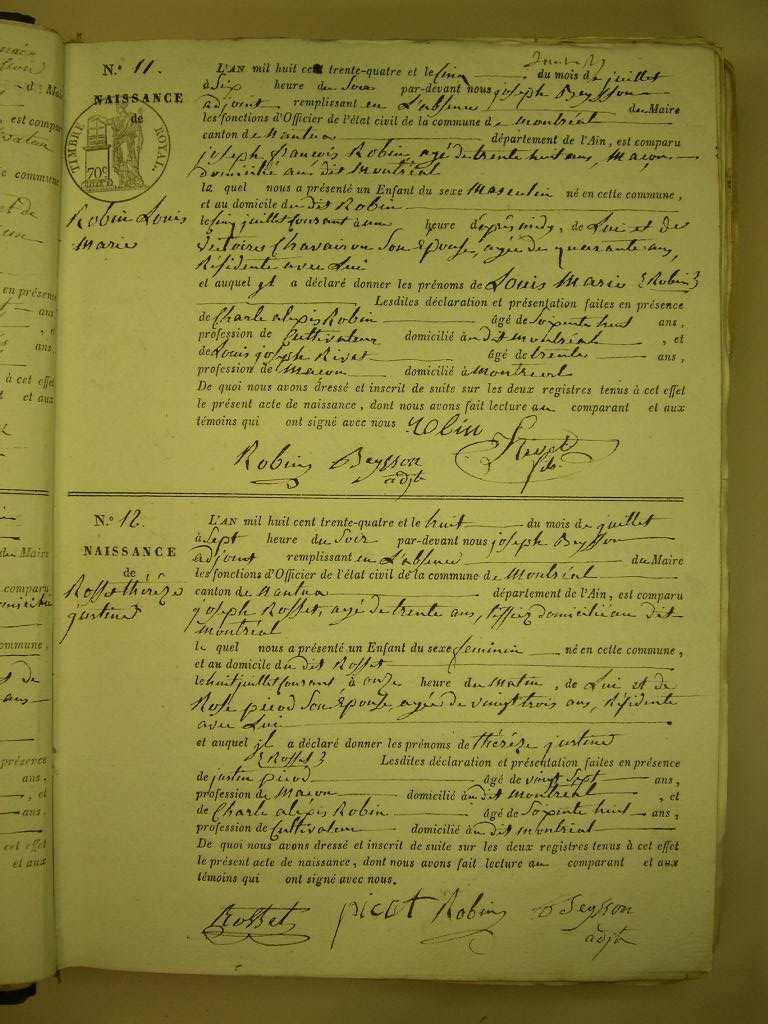 N.° 11.
NAISSANCE
de
TIMBRE ROYAL
70c
Robin Louis
Marie
L'AN mil huit cent trente-quatre et le cinq du mois de juillet
à Six heure du Soir par-devant nous joseph Beysson
adjoint remplissant en L'absence du Maire
les fonctions d'Officier de l'état civil de la commune de montréal
canton de Nantua département de l'Ain, est comparu
joseph françois Robin, agé de trente huit ans, Maçon
domicilié au dit Montréal
le quel nous a présenté un Enfant du sexe Masculin né en cette commune,
et au domicile du dit Robin
le cinq juillet Courant à une heure d'après midy, de Lui et de
victoire Son Epouse, agée de quarante ans,
Résidente avec Lui
et auquel jl a déclaré donner les prénoms de Louis Marie (Robin)
Lesdites déclaration et présentation faites en présence
de Charle aléxis Robin âgé de Soixente huit ans,
profession de Cultivateur domicilié au dit montréal, et
de Louis joseph Rivet âgé de trente ans,
profession de Macon domicilié à montréal
De quoi nous avons dressé et inscrit de suite sur les deux registres tenus à cet effet
le présent acte de naissance, dont nous avons fait lecture au comparant et aux
témoins qui ont signé avec nous Robin
Robin Beysson Rivet
adjt fils
N.° 12.
NAISSANCE
de
Rosset thérèze
justine
L'AN mil huit cent trente-quatre et le huit du mois de juillet
à Sept heure du Soir par-devant nous joseph Beysson
adjoint remplissant en L'absence du Maire
les fonctions d'Officier de l'état civil de la commune de Montréal
canton de Nantua département de l'Ain, est comparu
joseph Rosset, agé de trente ans, domicilié au dit
montréal
le quel nous a présenté un Enfant du sexe feminin né en cette commune,
et au domicile du dit Rosset
le huit juillet Courant à onze heure du Matin, de Lui et de
Rose picod Son Epouse, agée de vingt trois ans, Résidente
avec Lui
et auquel jl a déclaré donner les prénoms de thérèze justine
(Rosset) Lesdites déclaration et présentation faites en présence
de justin picod âgé de vingt Sept ans,
profession de Macon domicilié au dit Montréal, et
de Charle aléxis Robin âgé de Soixente huit ans,
profession de Cultivateur domicilié au dit montréal
De quoi nous avons dressé et inscrit de suite sur les deux registres tenus à cet effet
le présent acte de naissance, dont nous avons fait lecture au comparant et aux
témoins qui ont signé avec nous.
Rosset picot Robin Beysson
adjt